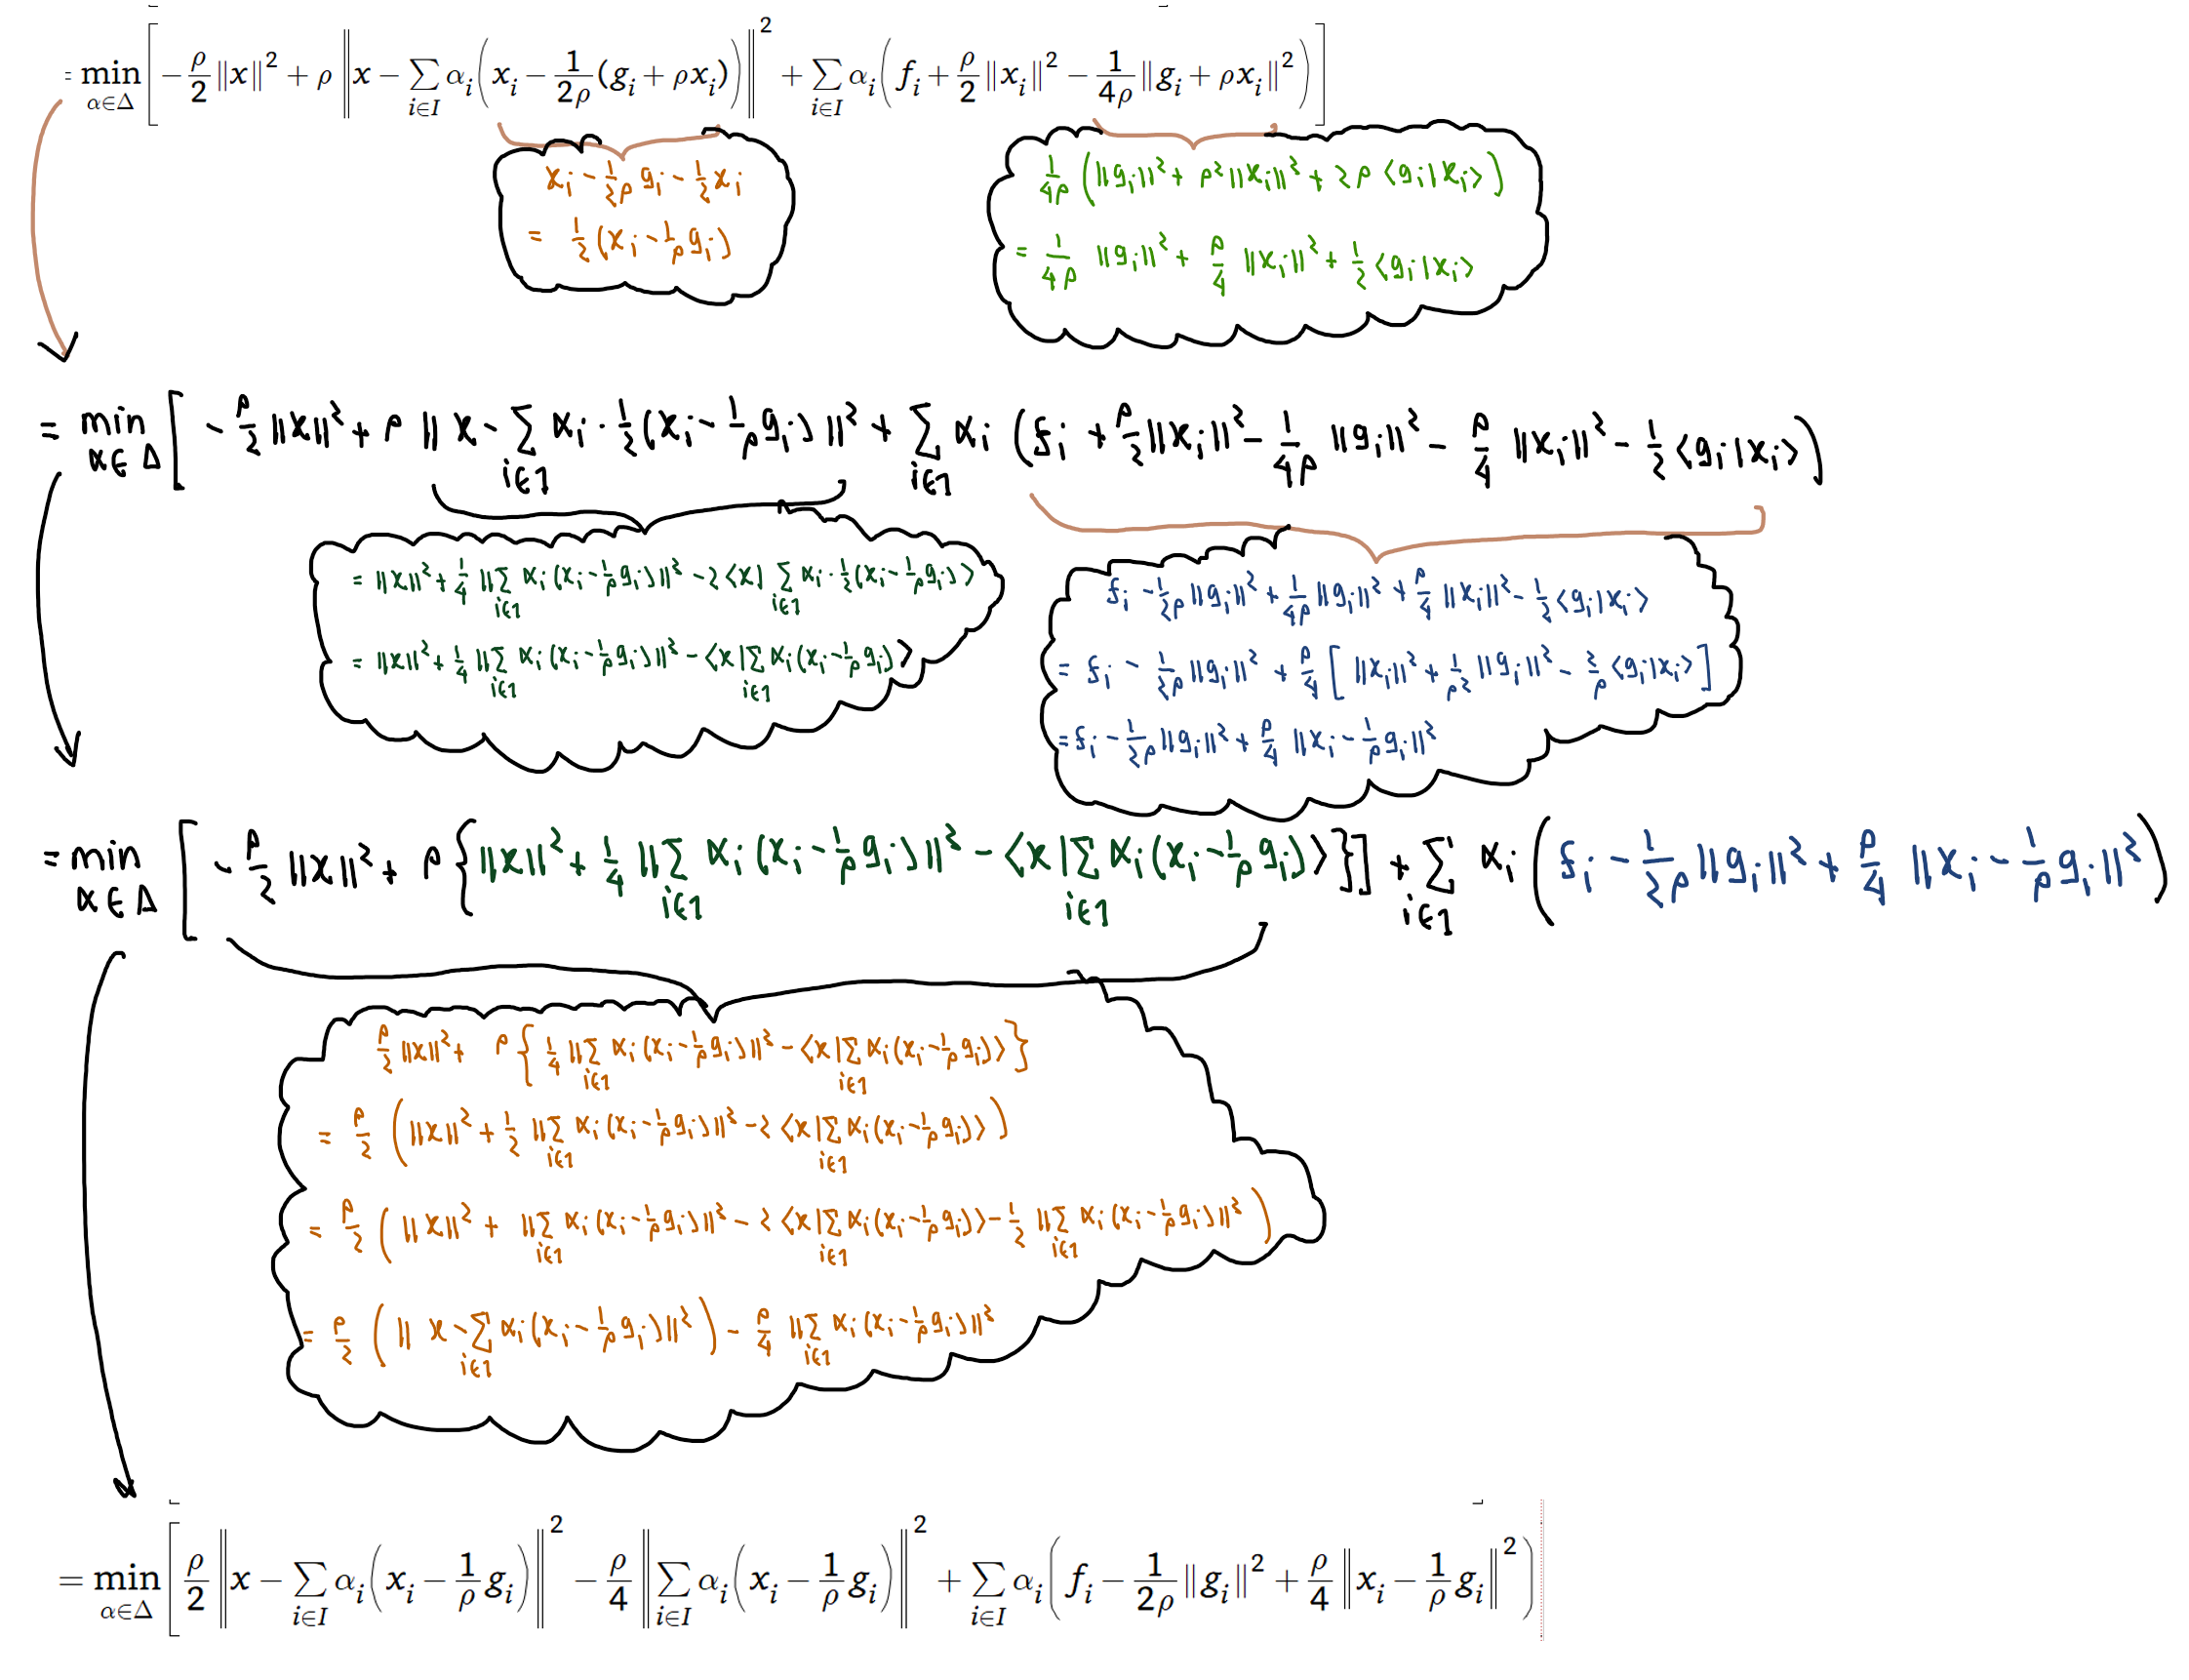 = min_{α∈Δ} [ −ρ/2 ‖x‖² + ρ ‖x − ∑_{i∈I} α_i (x_i − 1/(2ρ) (g_i + ρx_i))‖² + ∑_{i∈I} α_i (f_i + ρ/2 ‖x_i‖² − 1/(4ρ) ‖g_i + ρx_i‖²) ]
x_i − 1/(2ρ) g_i − 1/2 x_i
= 1/2 (x_i − 1/ρ g_i)
1/(4ρ) (‖g_i‖² + ρ²‖x_i‖² + 2ρ ⟨g_i|x_i⟩)
= 1/(4ρ) ‖g_i‖² + ρ/4 ‖x_i‖² + 1/2 ⟨g_i|x_i⟩
= min_{α∈Δ} [ −ρ/2 ‖x‖² + ρ ‖x − ∑_{i∈I} α_i · 1/2 (x_i − 1/ρ g_i)‖² + ∑_{i∈I} α_i (f_i + ρ/2 ‖x_i‖² − 1/(4ρ) ‖g_i‖² − ρ/4 ‖x_i‖² − 1/2 ⟨g_i|x_i⟩)
= ‖x‖² + 1/4 ‖∑_{i∈I} α_i (x_i − 1/ρ g_i)‖² − 2⟨x| ∑_{i∈I} α_i · 1/2 (x_i − 1/ρ g_i)⟩
= ‖x‖² + 1/4 ‖∑_{i∈I} α_i (x_i − 1/ρ g_i)‖² − ⟨x|∑_{i∈I} α_i (x_i − 1/ρ g_i)⟩
f_i − 1/(2ρ) ‖g_i‖² + 1/(4ρ) ‖g_i‖² + ρ/4 ‖x_i‖² − 1/2 ⟨g_i|x_i⟩
= f_i − 1/(2ρ) ‖g_i‖² + ρ/4 [ ‖x_i‖² + 1/ρ² ‖g_i‖² − 2/ρ ⟨g_i|x_i⟩ ]
= f_i − 1/(2ρ) ‖g_i‖² + ρ/4 ‖x_i − 1/ρ g_i‖²
= min_{α∈Δ} [ −ρ/2 ‖x‖² + ρ {‖x‖² + 1/4 ‖∑_{i∈I} α_i (x_i − 1/ρ g_i)‖² − ⟨x|∑_{i∈I} α_i (x_i − 1/ρ g_i)⟩}] + ∑_{i∈I} α_i (f_i − 1/(2ρ) ‖g_i‖² + ρ/4 ‖x_i − 1/ρ g_i‖²)
ρ/2 ‖x‖² + ρ { 1/4 ‖∑_{i∈I} α_i (x_i − 1/ρ g_i)‖² − ⟨x|∑_{i∈I} α_i (x_i − 1/ρ g_i)⟩ }
= ρ/2 (‖x‖² + 1/2 ‖∑_{i∈I} α_i (x_i − 1/ρ g_i)‖² − 2 ⟨x|∑_{i∈I} α_i (x_i − 1/ρ g_i)⟩)
= ρ/2 (‖x‖² + ‖∑_{i∈I} α_i (x_i − 1/ρ g_i)‖² − 2 ⟨x|∑_{i∈I} α_i (x_i − 1/ρ g_i)⟩ − 1/2 ‖∑_{i∈I} α_i (x_i − 1/ρ g_i)‖²)
= ρ/2 (‖x − ∑_{i∈I} α_i (x_i − 1/ρ g_i)‖²) − ρ/4 ‖∑_{i∈I} α_i (x_i − 1/ρ g_i)‖²
= min_{α∈Δ} [ ρ/2 ‖x − ∑_{i∈I} α_i (x_i − 1/ρ g_i)‖² − ρ/4 ‖∑_{i∈I} α_i (x_i − 1/ρ g_i)‖² + ∑_{i∈I} α_i (f_i − 1/(2ρ) ‖g_i‖² + ρ/4 ‖x_i − 1/ρ g_i‖²)